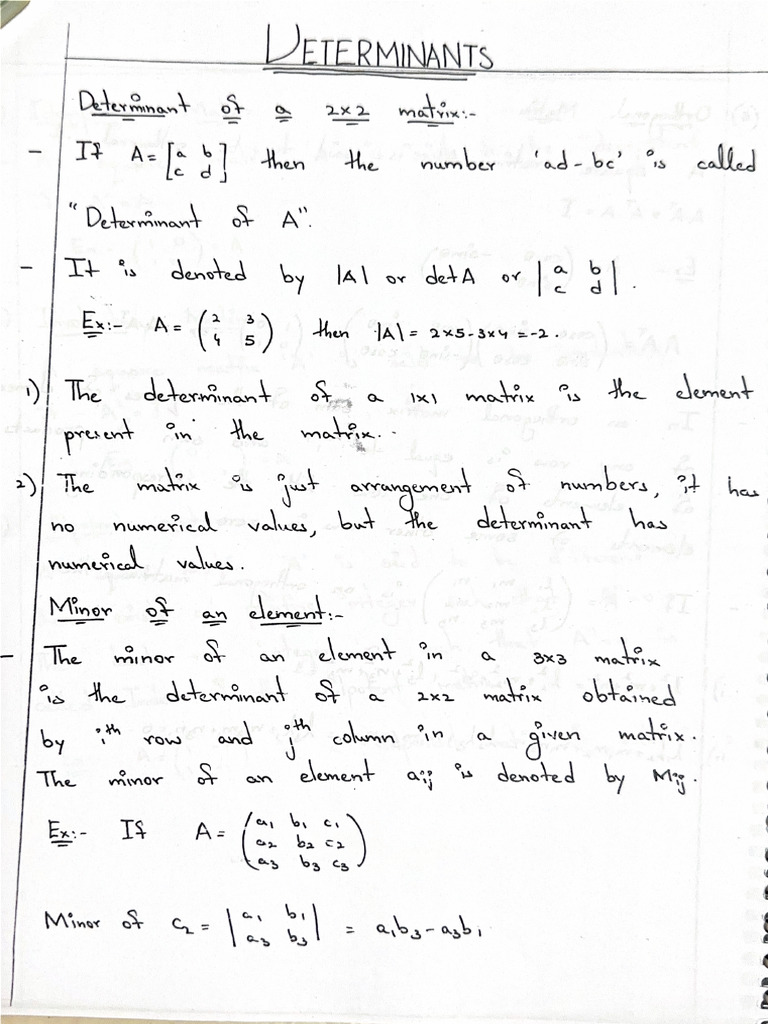 DETERMINANTS
Determinant of a 2x2 matrix:-
- If A = [a b c d] then the number 'ad - bc' is called
"Determinant of A".
- It is denoted by |A| or det A or |a b c d|.
Ex:- A = (2 3 4 5) then |A| = 2x5-3x4 = -2.
1) The determinant of a 1x1 matrix is the element
present in the matrix.
2) The matrix is just arrangement of numbers, it has
no numerical values, but the determinant has
numerical values.
Minor of an element:-
- The minor of an element in a 3x3 matrix
is the determinant of a 2x2 matrix obtained
by ith row and jth column in a given matrix.
The minor of an element aij is denoted by Mij.
Ex:- If A = (a1 b1 c1 a2 b2 c2 a3 b3 c3)
Minor of c2 = |a1 b1 a3 b3| = a1b3 - a3b1